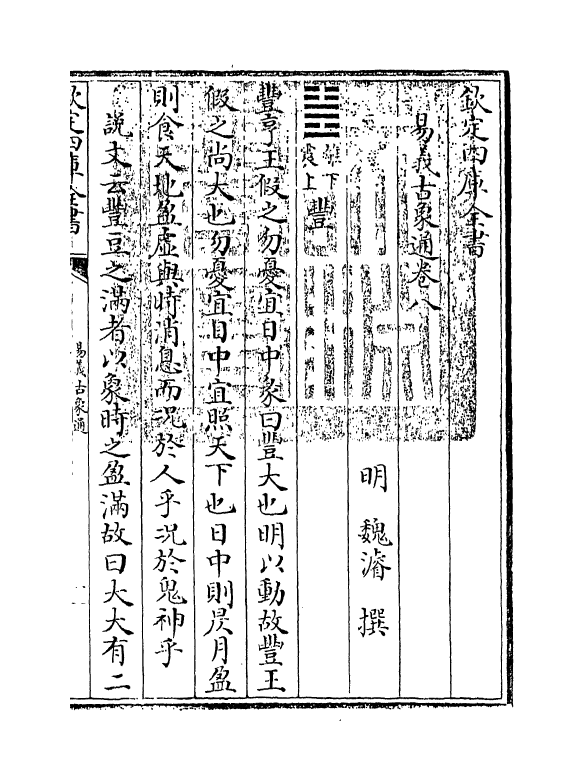 欽定四庫全書
易義古象通卷八
明 魏濬 撰
離下
震上
豐
豐亨王假之勿憂宜日中彖曰豐大也明以動故豐王
假之尚大也勿憂宜日中宜照天下也日中則昃月盈
則食天地盈虛與時消息而況於人乎況於鬼神乎
說文云豐豆之滿者以象時之盈滿故曰大大有二
欽定四庫全書
易義古象通
一